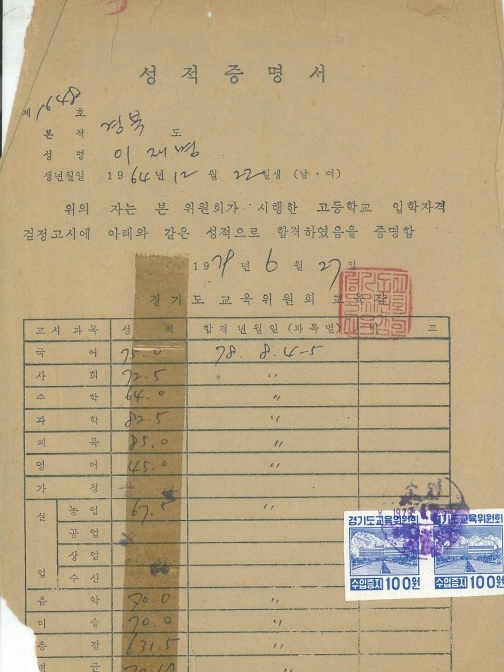 성적증명서
제 1648 호
본적 경북 도
성명 이재명
생년월일 1964년 12월 22일생 (남·여)
위의 자는 본 위원회가 시행한 고등학교 입학자격
검정고시에 아래와 같은 성적으로 합격하였음을 증명함
1979년 6월 27일
경기도교육위원회 교육감
고시과목 성적 합격년월일(과목별) 비고
국어 75.0 78. 8. 4-5
사회 72.5 〃
수학 64.0 〃
과학 82.5 〃
체육 85.0 〃
영어 45.0 〃
가정
실업 농업 67.5 〃
공업
상업
수산
음악 70.0 〃
미술 70.0 〃
총점 631.5
평균
경기도교육위원회 경기도교육위원회
수입증지 100원 수입증지 100원